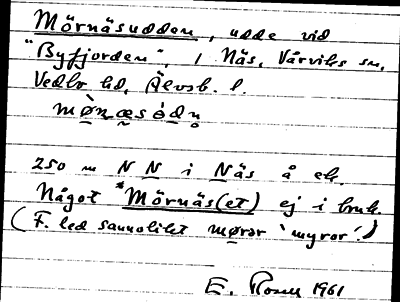 Mörnäsudden, udde vid
"Byfjorden", i Näs, Vårviks sn,
Vedbo hd, Älvsb. l.
mø̀næsódn̥
250 m N N i Näs å ek.
Något *Mörnäs(et) ej i bruk.
(F. led sannolikt mørər 'myror'.)
E. Rosell 1961